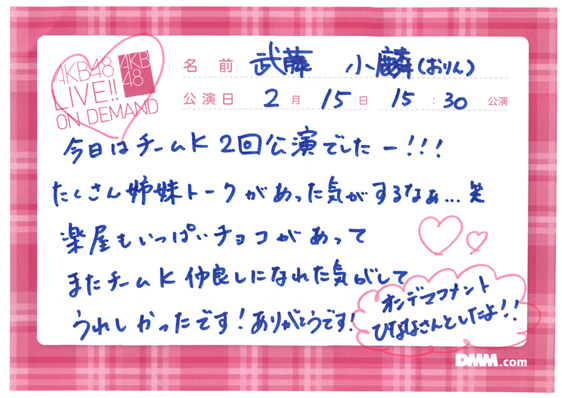 AKB48
LIVE!!
ON DEMAND
AKB
48
名前 武藤 小麟(おりん)
公演日 2月15日 15:30 公演
今日はチームK 2回公演でしたー!!!
たくさん姉妹トークがあった気がするなぁ…笑
楽屋もいっぱいチョコがあって
またチームK仲良しになれた気がして
うれしかったです!ありがとうです!
オンデマフナント
ひななさんとしたよ!!
DMM.com